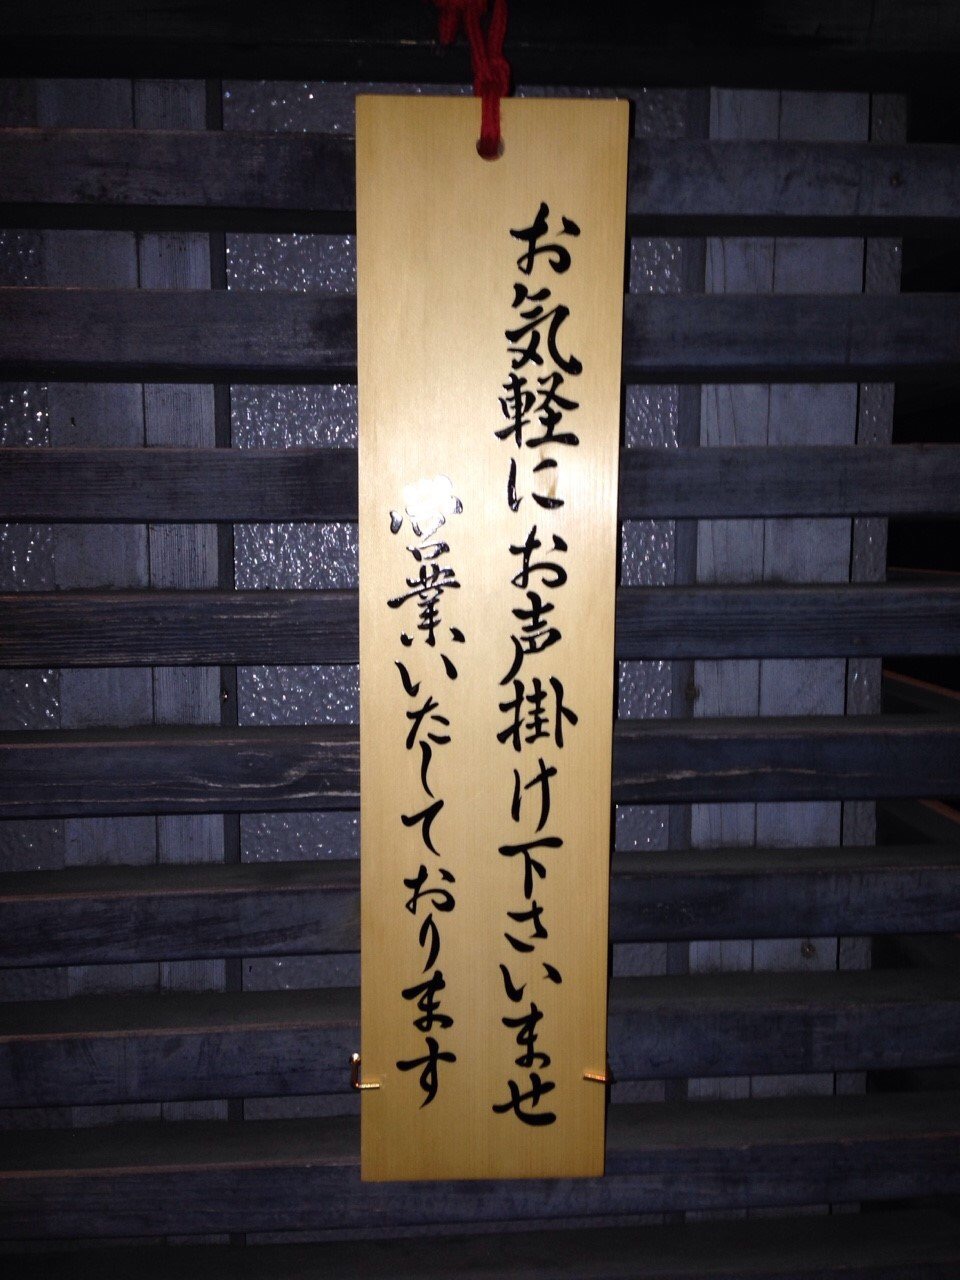 お気軽にお声掛け下さいませ
営業いたしております